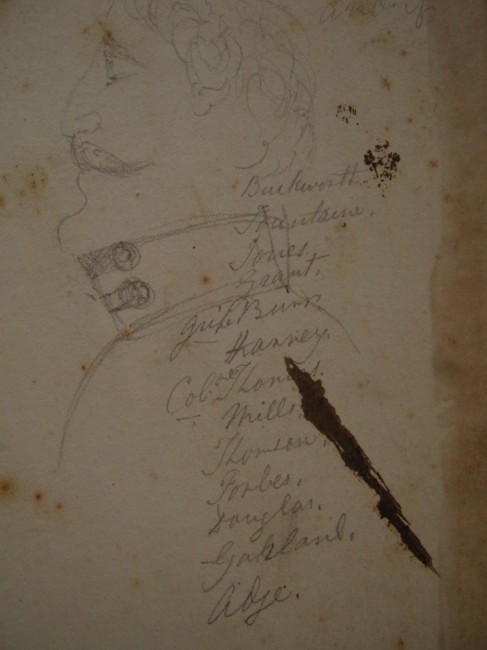 Buckworth
Fountaine.
Jones,
Grant.
Burn
Harvey.
Col. Thomas.
Mills.
Thomson.
Forbes.
Douglas.
Oakland.
Adje.